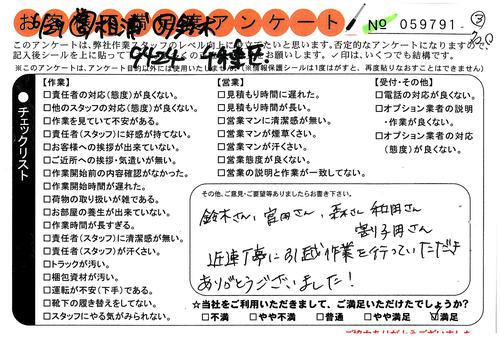 アンケート
№ 059791-
③
このアンケートは、弊社作業スタッフのレベル向上に
立てたいと思います。否定的なアンケートになりますので、
記入後シールを上に貼って
お願いします。✓印は、いくつでも結構です。
※このアンケートは、アンケート目的以外には使用いたしません。
(※情報保護シールは1度はがすと、再度貼りなおすことはできません)
●チェックリスト
【作業】
□責任者の対応(態度)が良くない。
□他のスタッフの対応(態度)が良くない。
□作業を見ていて不安がある。
□責任者(スタッフ)に好感が持てない。
□お客様への挨拶が出来ていない。
□ご近所への挨拶・気遣いが無い。
□作業開始前の内容確認がなかった。
□作業開始時間が遅れた。
□荷物の取り扱いが雑である。
□お部屋の養生が出来ていない。
□作業時間が長すぎる。
□責任者(スタッフ)に清潔感が無い。
□責任者(スタッフ)が汗くさい。
□トラックが汚い。
□梱包資材が汚い。
□運転が不安(下手)である。
□靴下の履き替えをしてない。
□スタッフにやる気がみられない。
【営業】
□見積もり時間に遅れた。
□見積もり時間が長い。
□営業マンに清潔感が無い。
□営業マンが煙草くさい。
□営業マンが汗くさい。
□営業態度が良くない。
□営業の説明と作業が一致してない。
【受付・その他】
□電話の対応が良くない。
□オプション業者の説明
・作業が良くない。
□オプション業者の対応
(態度)が良くない。
その他、ご意見・ご要望等ありましたらお書き下さい。
鈴木さん、富田さん、森さん 和田さん
割子田さん
近連丁寧に引越作業を行っていただき
ありがとうございました!
☆当社をご利用いただきまして、ご満足いただけましたでしょうか?
□不満 □やや不満 □普通 □やや満足 ☑満足
ご協力ありがとうございました